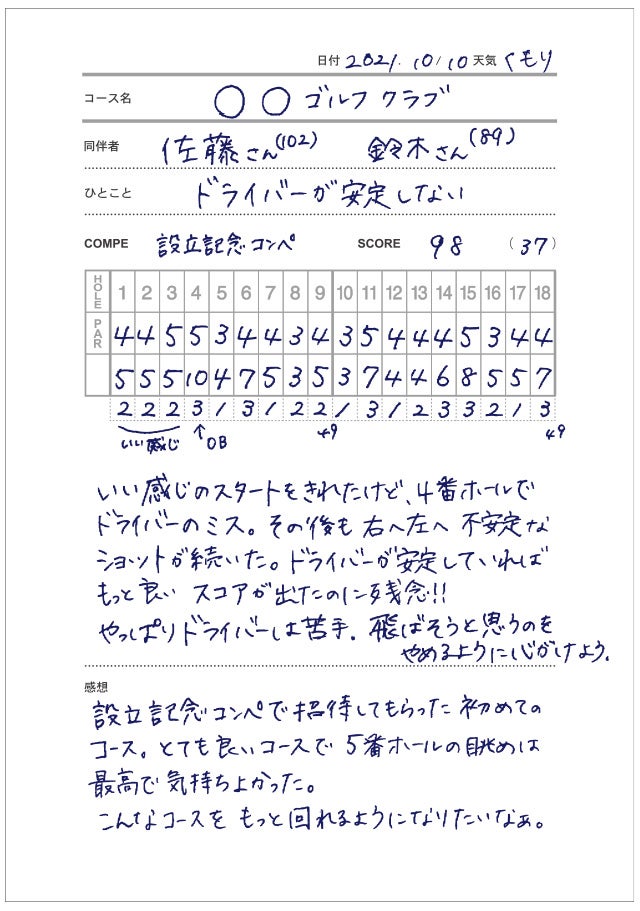 日付 2021. 10/10 天気 くもり
コース名 〇〇 ゴルフ クラブ
同伴者 佐藤さん(102) 鈴木さん(89)
ひとこと ドライバーが安定しない
COMPE 設立記念コンペ SCORE 98 (37)
HOLE 1 2 3 4 5 6 7 8 9 10 11 12 13 14 15 16 17 18
PAR 4 4 5 5 3 4 4 3 4 3 5 4 4 4 5 3 4 4
5 5 5 10 4 7 5 3 5 3 7 4 4 6 8 5 5 7
2 2 2 3 1 3 1 2 2 1 3 1 2 3 3 2 1 3
いい感じ ↑OB 49 49
いい感じのスタートをきれたけど、4番ホールで
ドライバーのミス。その後も右へ左へ不安定な
ショットが続いた。ドライバーが安定していれば
もっと良いスコアが出たのに残念!!
やっぱりドライバーは苦手。飛ばそうと思うのを
やめるように心がけよう。
感想
設立記念コンペで招待してもらった初めての
コース。とても良いコースで5番ホールの眺めは
最高で気持ちよかった。
こんなコースをもっと回れるようになりたいなぁ。